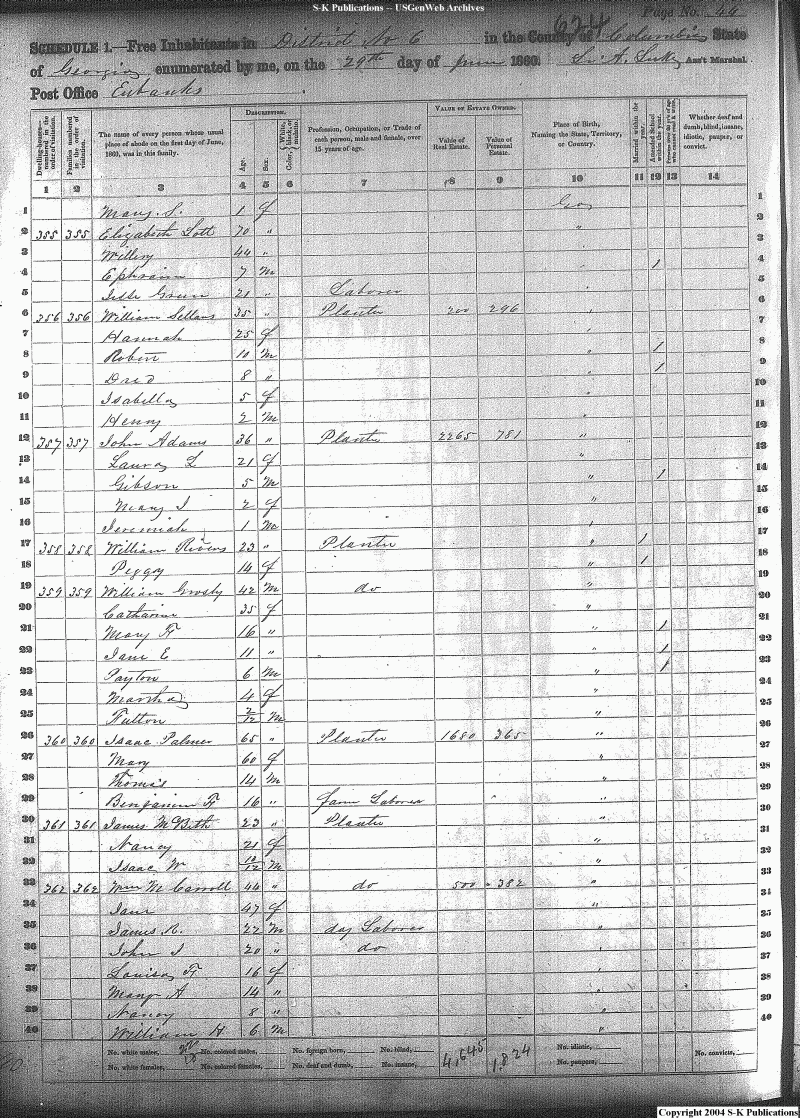 S-K Publications -- USGenWeb Archives
Page No. 46
624
SCHEDULE 1.—Free Inhabitants in District No 6 in the County of Columbia State
of Georgia enumerated by me, on the 29th day of June 1860. Ass't Marshal
Post Office Eubanks
Dwelling-houses—numbered in the order of visitation.
Families numbered in the order of visitation.
The name of every person whose usual place of abode on the first day of June, 1860, was in this family.
DESCRIPTION.
Age.
Sex.
Color, White, black, or mulatto.
Profession, Occupation, or Trade of each person, male and female, over 15 years of age.
VALUE OF ESTATE OWNED.
Value of Real Estate.
Value of Personal Estate.
Place of Birth, Naming the State, Territory, or Country.
Married within the year.
Attended School within the year.
Whether deaf and dumb, blind, insane, idiotic, pauper, or convict.
1 2 3 4 5 6 7 8 9 10 11 12 13 14
1 Mary S. 1 f Geo 1
2 355 355 Elizabeth Lott 70 " " 2
3 44 " 3
4 Ephraim 7 m 1 4
5 Green 21 " Laborer 5
6 356 356 William Sellars 35 " Planter 200 296 " 6
7 Hannah 25 f " 7
8 Robin 10 m " 1 8
9 Dred 8 " " 1 9
10 Isabella 5 f " 10
11 Henry 2 m " 11
12 357 357 John Adams 36 " Planter 2265 781 " 12
13 Laura L 21 f " 13
14 Gibson 5 m " 1 14
15 Mary J 2 f " 15
16 Jeremiah 1 m " 16
17 358 358 William Rivers 23 " Planter " 1 17
18 Peggy 14 f " 1 18
19 359 359 William Grosby 42 m do " 19
20 Catharine 35 f " 20
21 Mary F 16 " " 1 21
22 Jane E 11 " 1 22
23 Payton 6 m " 1 23
24 Marsha 4 f " 24
25 Fulton 2/12 m " 25
26 360 360 Isaac Palmer 65 " Planter 1680 365 " 26
27 Mary 60 f 27
28 Thomas 14 m " 28
29 Benjamin F 16 " farm Laborer " 29
30 361 361 James McBith 23 " Planter 30
31 Nancy 21 f " 31
32 Isaac W 10/12 m " 32
33 362 362 Wm M Carroll 44 " do 500 382 " 33
34 Jane 47 f " 34
35 James R. 22 m day Laborer " 35
36 John J 20 " do 36
37 Louisa F 16 f " 37
38 Mary A 14 " " 38
39 Nancy 8 " " 39
40 William H 6 m " 40
No. white males, No. colored males, No. foreign born, No. blind, 4,645 1,824 No. idiotic, No. convicts,
No. white females, No. colored females, No. deaf and dumb, No. insane, No. paupers,
Copyright 2004 S-K Publications